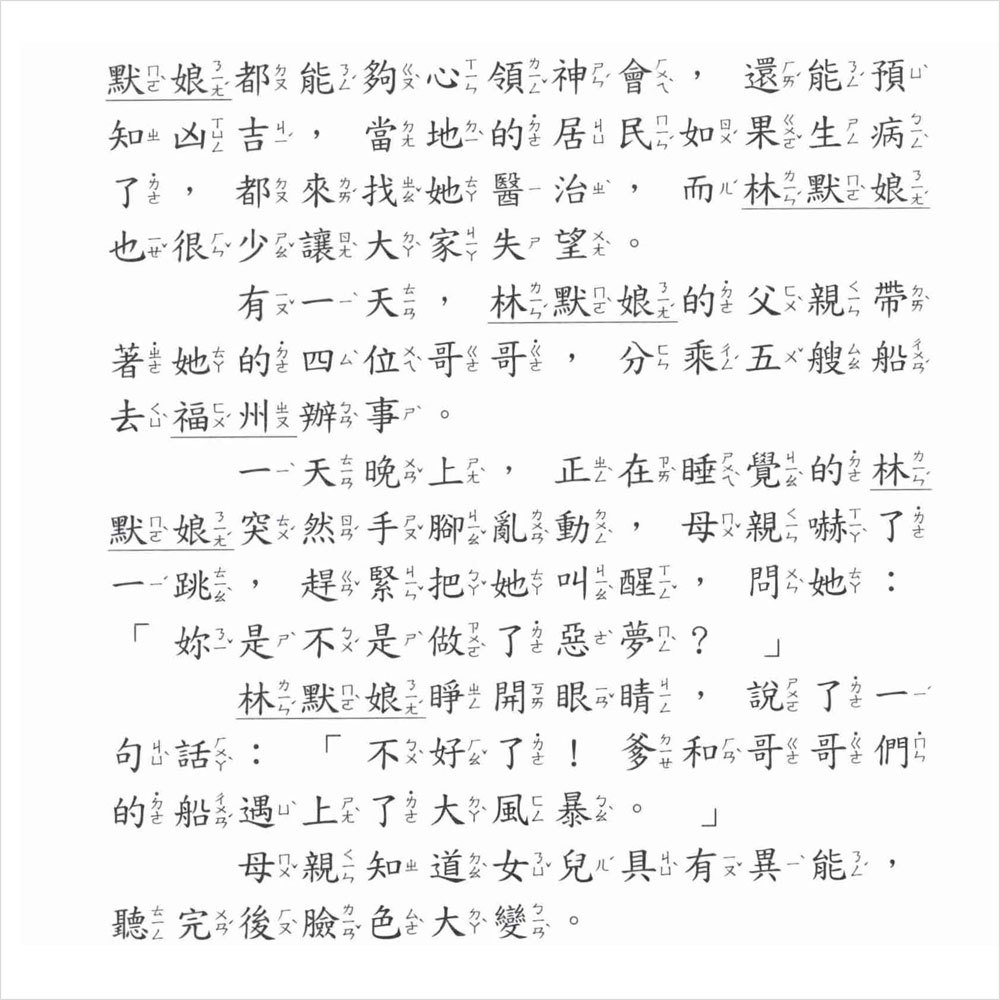 默娘都能夠心領神會，還能預
知凶吉，當地的居民如果生病
了，都來找她醫治，而林默娘
也很少讓大家失望。
有一天，林默娘的父親帶
著她的四位哥哥，分乘五艘船
去福州辦事。
一天晚上，正在睡覺的林
默娘突然手腳亂動，母親嚇了
一跳，趕緊把她叫醒，問她：
「妳是不是做了惡夢？」
林默娘睜開眼睛，說了一
句話：「不好了！爹和哥哥們
的船遇上了大風暴。」
母親知道女兒具有異能，
聽完後臉色大變。